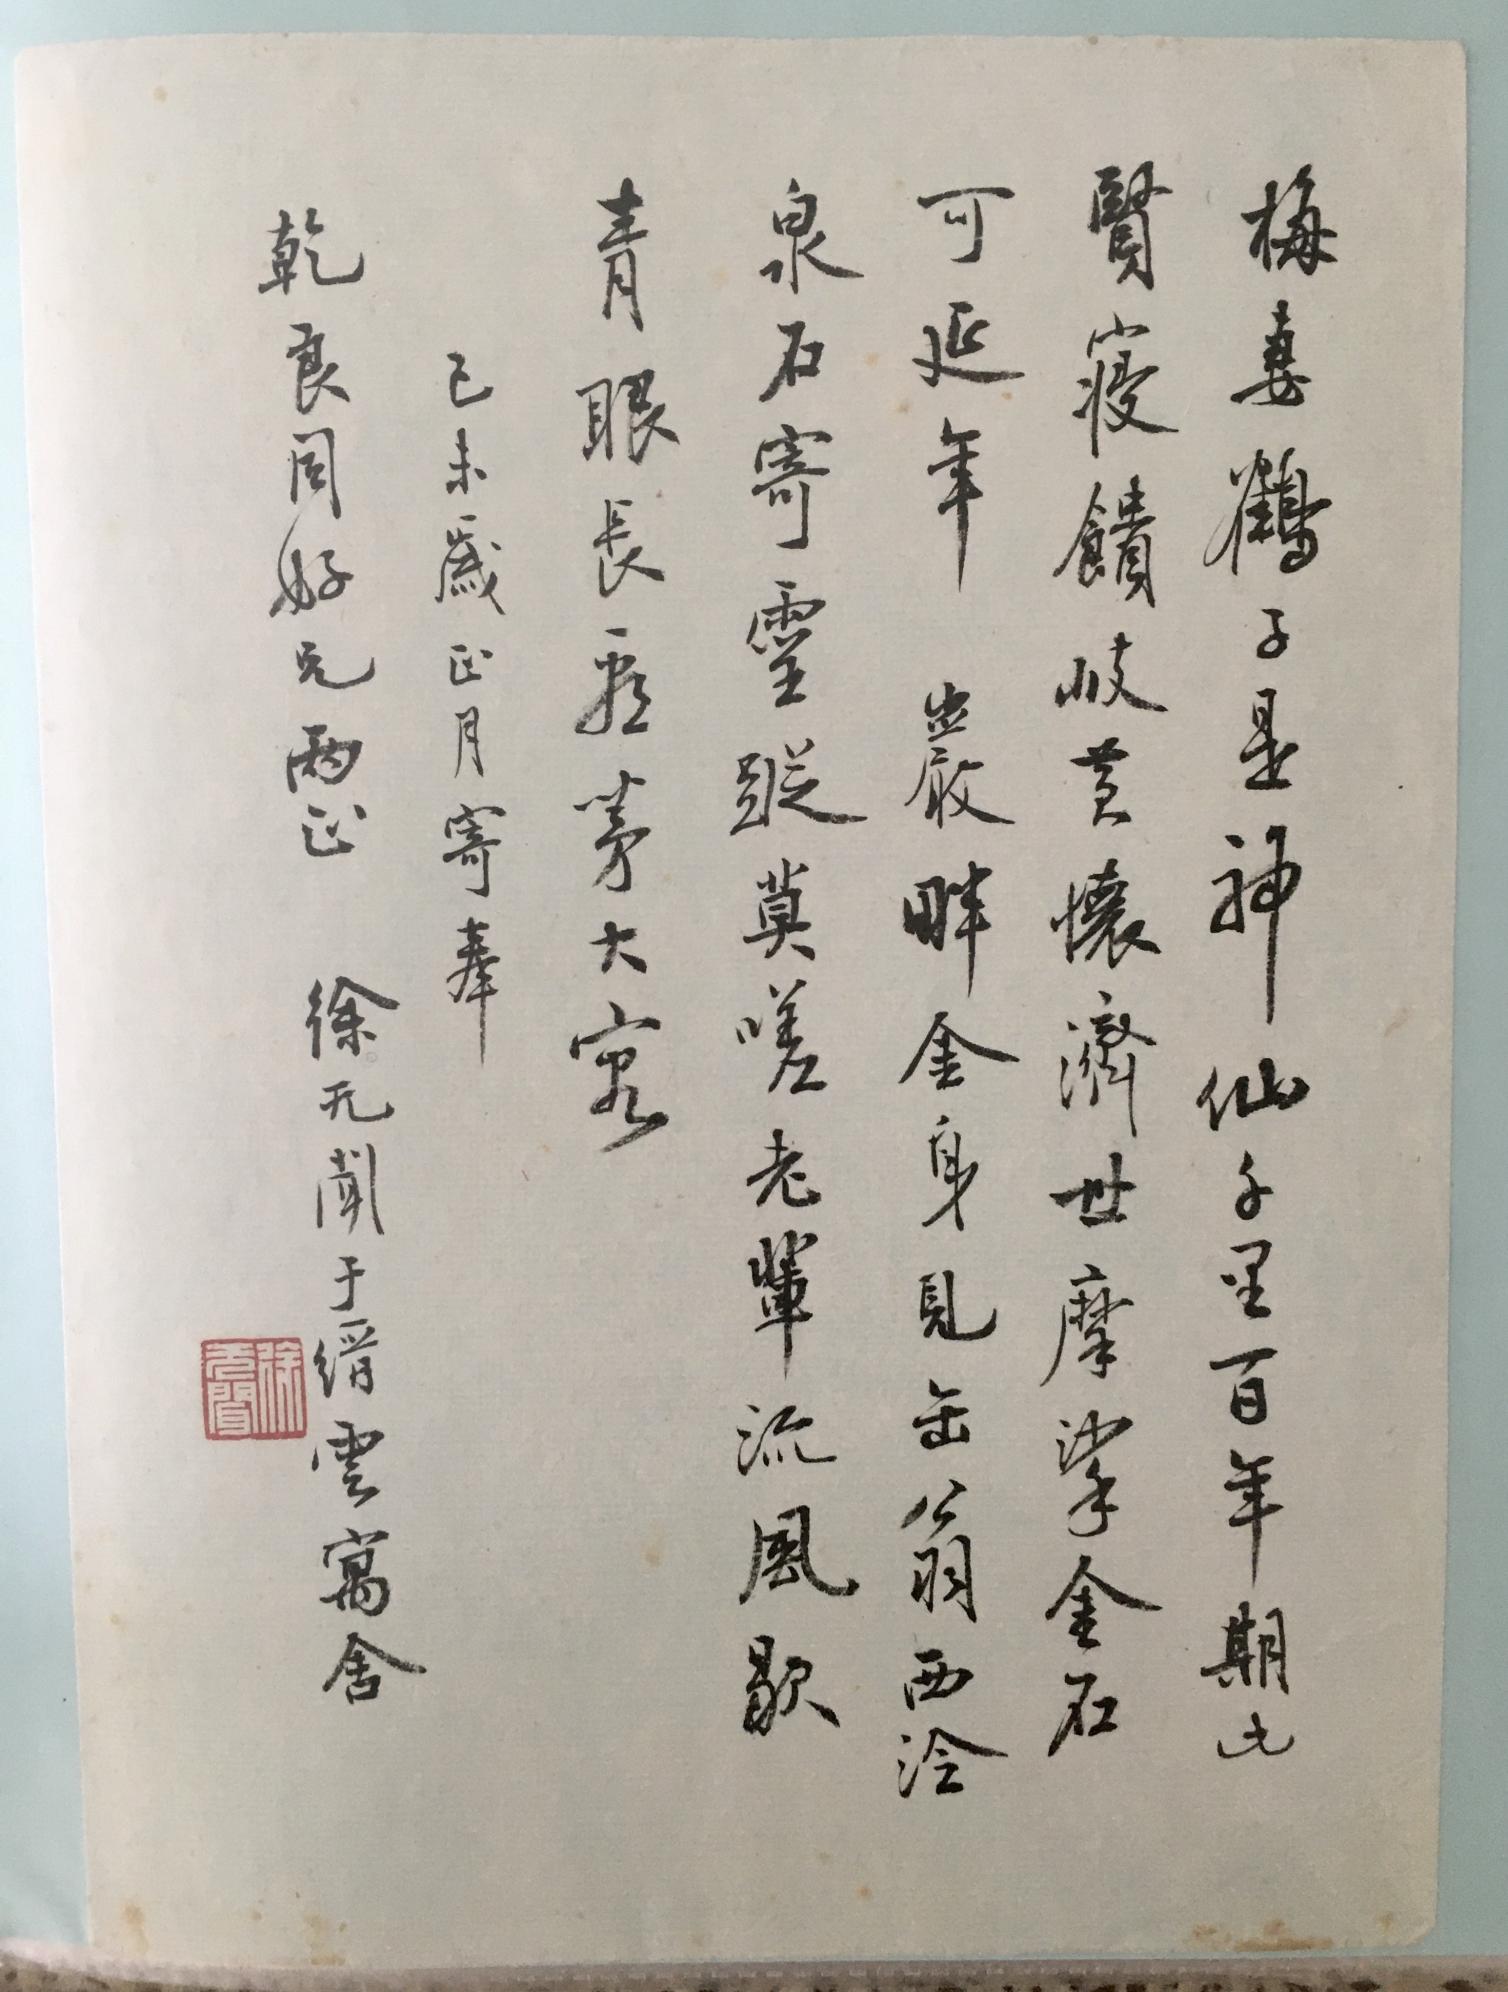 梅妻鶴子是神仙千里百年期比
賢寢饋歧黃懷濟世摩挲金石
可延年 巖畔金身見缶翁西泠
泉石寄靈蹤莫嗟老輩流風歇
青眼長看茅大容
己未歲正月寄奉
乾良同好兄兩正 徐无聞于縉雲寓舍
徐无聞